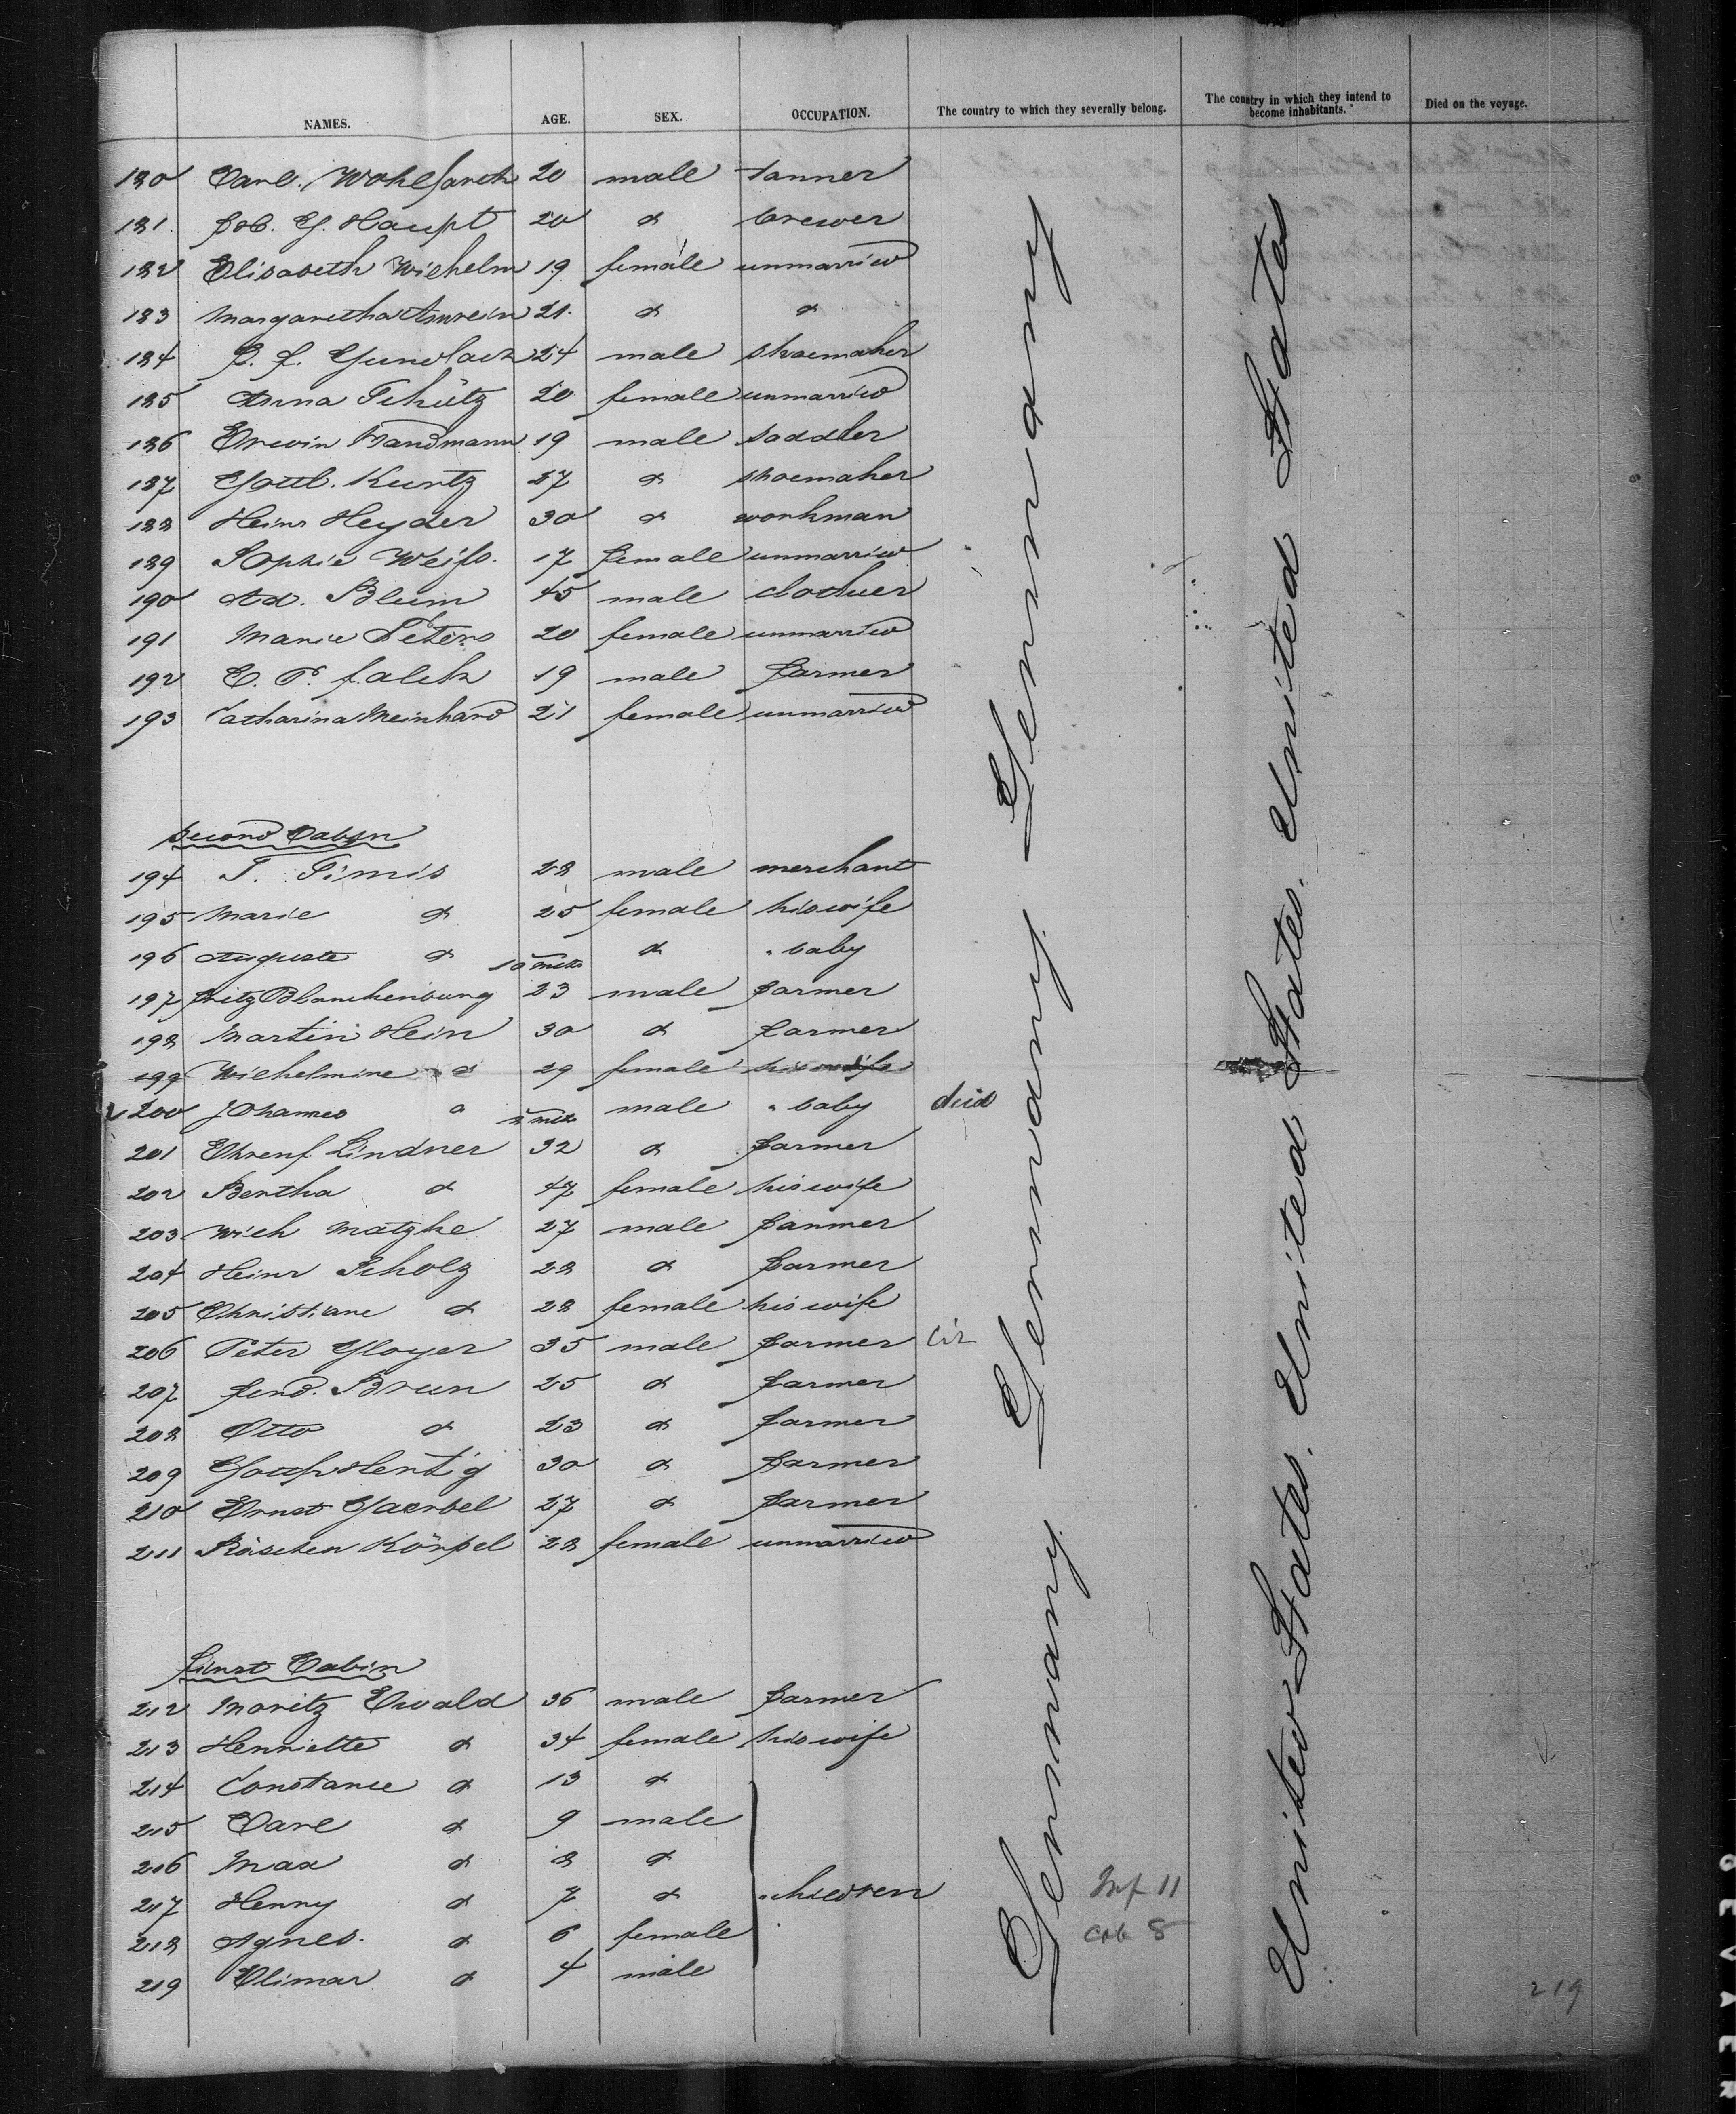 NAMES. AGE. SEX. OCCUPATION. The country to which they severally belong. The country in which they intend to become inhabitants. Died on the voyage.
180 Carl. Wohlfarth 20 male tanner
181. Joh. G. Haupt 20 do brewer
182 Elisabeth Wilhelm 19 female unmarried
183 Margaretha Amrein 21. do do
184 Gundlach 24 male shoemaker
185 Anna Schütz 20 female unmarried
186 Erwin Handmann 19 male saddler
187 Gottl. Kurtz 27 do shoemaker
188 Heinr Heyder 30 do workman
189 Sophie Weiß. 17 female unmarried
190 Ad. Blum 45 male
191 Marie Peters 20 female unmarried
192 E. P. Falck 19 male farmer
193 Catharina Meinhard 21 female unmarried
Second Cabin
194 T. Timis 28 male merchant
195 Marie do 25 female his wife
196 Auguste do 10 mths do " baby
197 Fritz Blanckenburg 23 male farmer
198 Martin Hein 30 do farmer
199 Wilhelmine do 29 female his wife
200 Johannes do mths male " baby died
201 Ehrenf Lindner 32 do farmer
202 Bertha do 47 female his wife
203 Wilh Matzke 27 male farmer
204 Heinr Scholz 28 do farmer
205 Christiane do 28 female his wife
206 Peter Gloyer 35 male farmer
207 Ferd. Brun 25 do farmer
208 Otto do 23 do farmer
209 Hertig 30 do farmer
210 Ernst Gaerbel 27 do farmer
211 Röschen Körpel 28 female unmarried
First Cabin
212 Moritz Ewald 36 male farmer
213 Henriette do 34 female his wife
214 Constance do 13 do
215 Carl do 9 male
216 Max do 8 do
217 Henny do 7 do " children
218 Agnes. do 6 female
219 Olimar do 4 male
Germany. Germany. Germany. Germany
United States. United States. United States. United States
Inf 11
cab 8
219
GEVAER